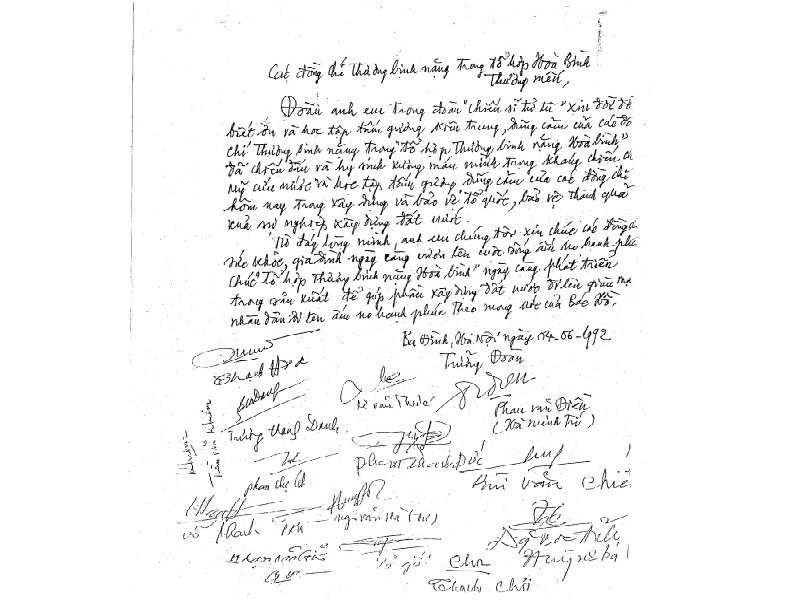 Các đồng chí thương binh nặng trong tổ hợp Hoà Bình
Thương mến,
Đoàn anh em trong đoàn "chiến sĩ tử tù" xin đời đời
biết ơn và học tập tấm gương kiên trung, dũng cảm của các đồng
chí thương binh nặng trong "tổ hợp thương binh nặng Hoà bình"
đã chiến đấu và hy sinh xương máu mình trong kháng chiến
mỹ cứu nước và học tập tấm gương dũng cảm của các đồng chí
hôm nay trong xây dựng và bảo vệ tổ quốc, bảo vệ thành quả
của sự nghiệp xây dựng đất nước.
Từ đáy lòng mình, anh em chúng tôi xin chúc các đồng chí
sức khoẻ, gia đình ngày càng vươn lên cuộc sống ấm no hạnh phúc
chúc "Tổ hợp thương binh nặng Hoà bình" ngày càng phát triển
trong sản xuất để góp phần xây dựng đất nước đi lên giàu mạnh
nhân dân đi lên ấm no hạnh phúc theo mong ước của Bác Hồ.
Ba Đình, Hà Nội ngày 04-06-1992
Trưởng Đoàn
Thạch
Lê văn Thức
Phan văn Điền
(Hà minh Trí)
Trương thanh Danh
phạm thanh Đức
Bùi văn Chiê
phan
Võ thanh
nguyễn văn Hà (Tư)
Thạch Chơi